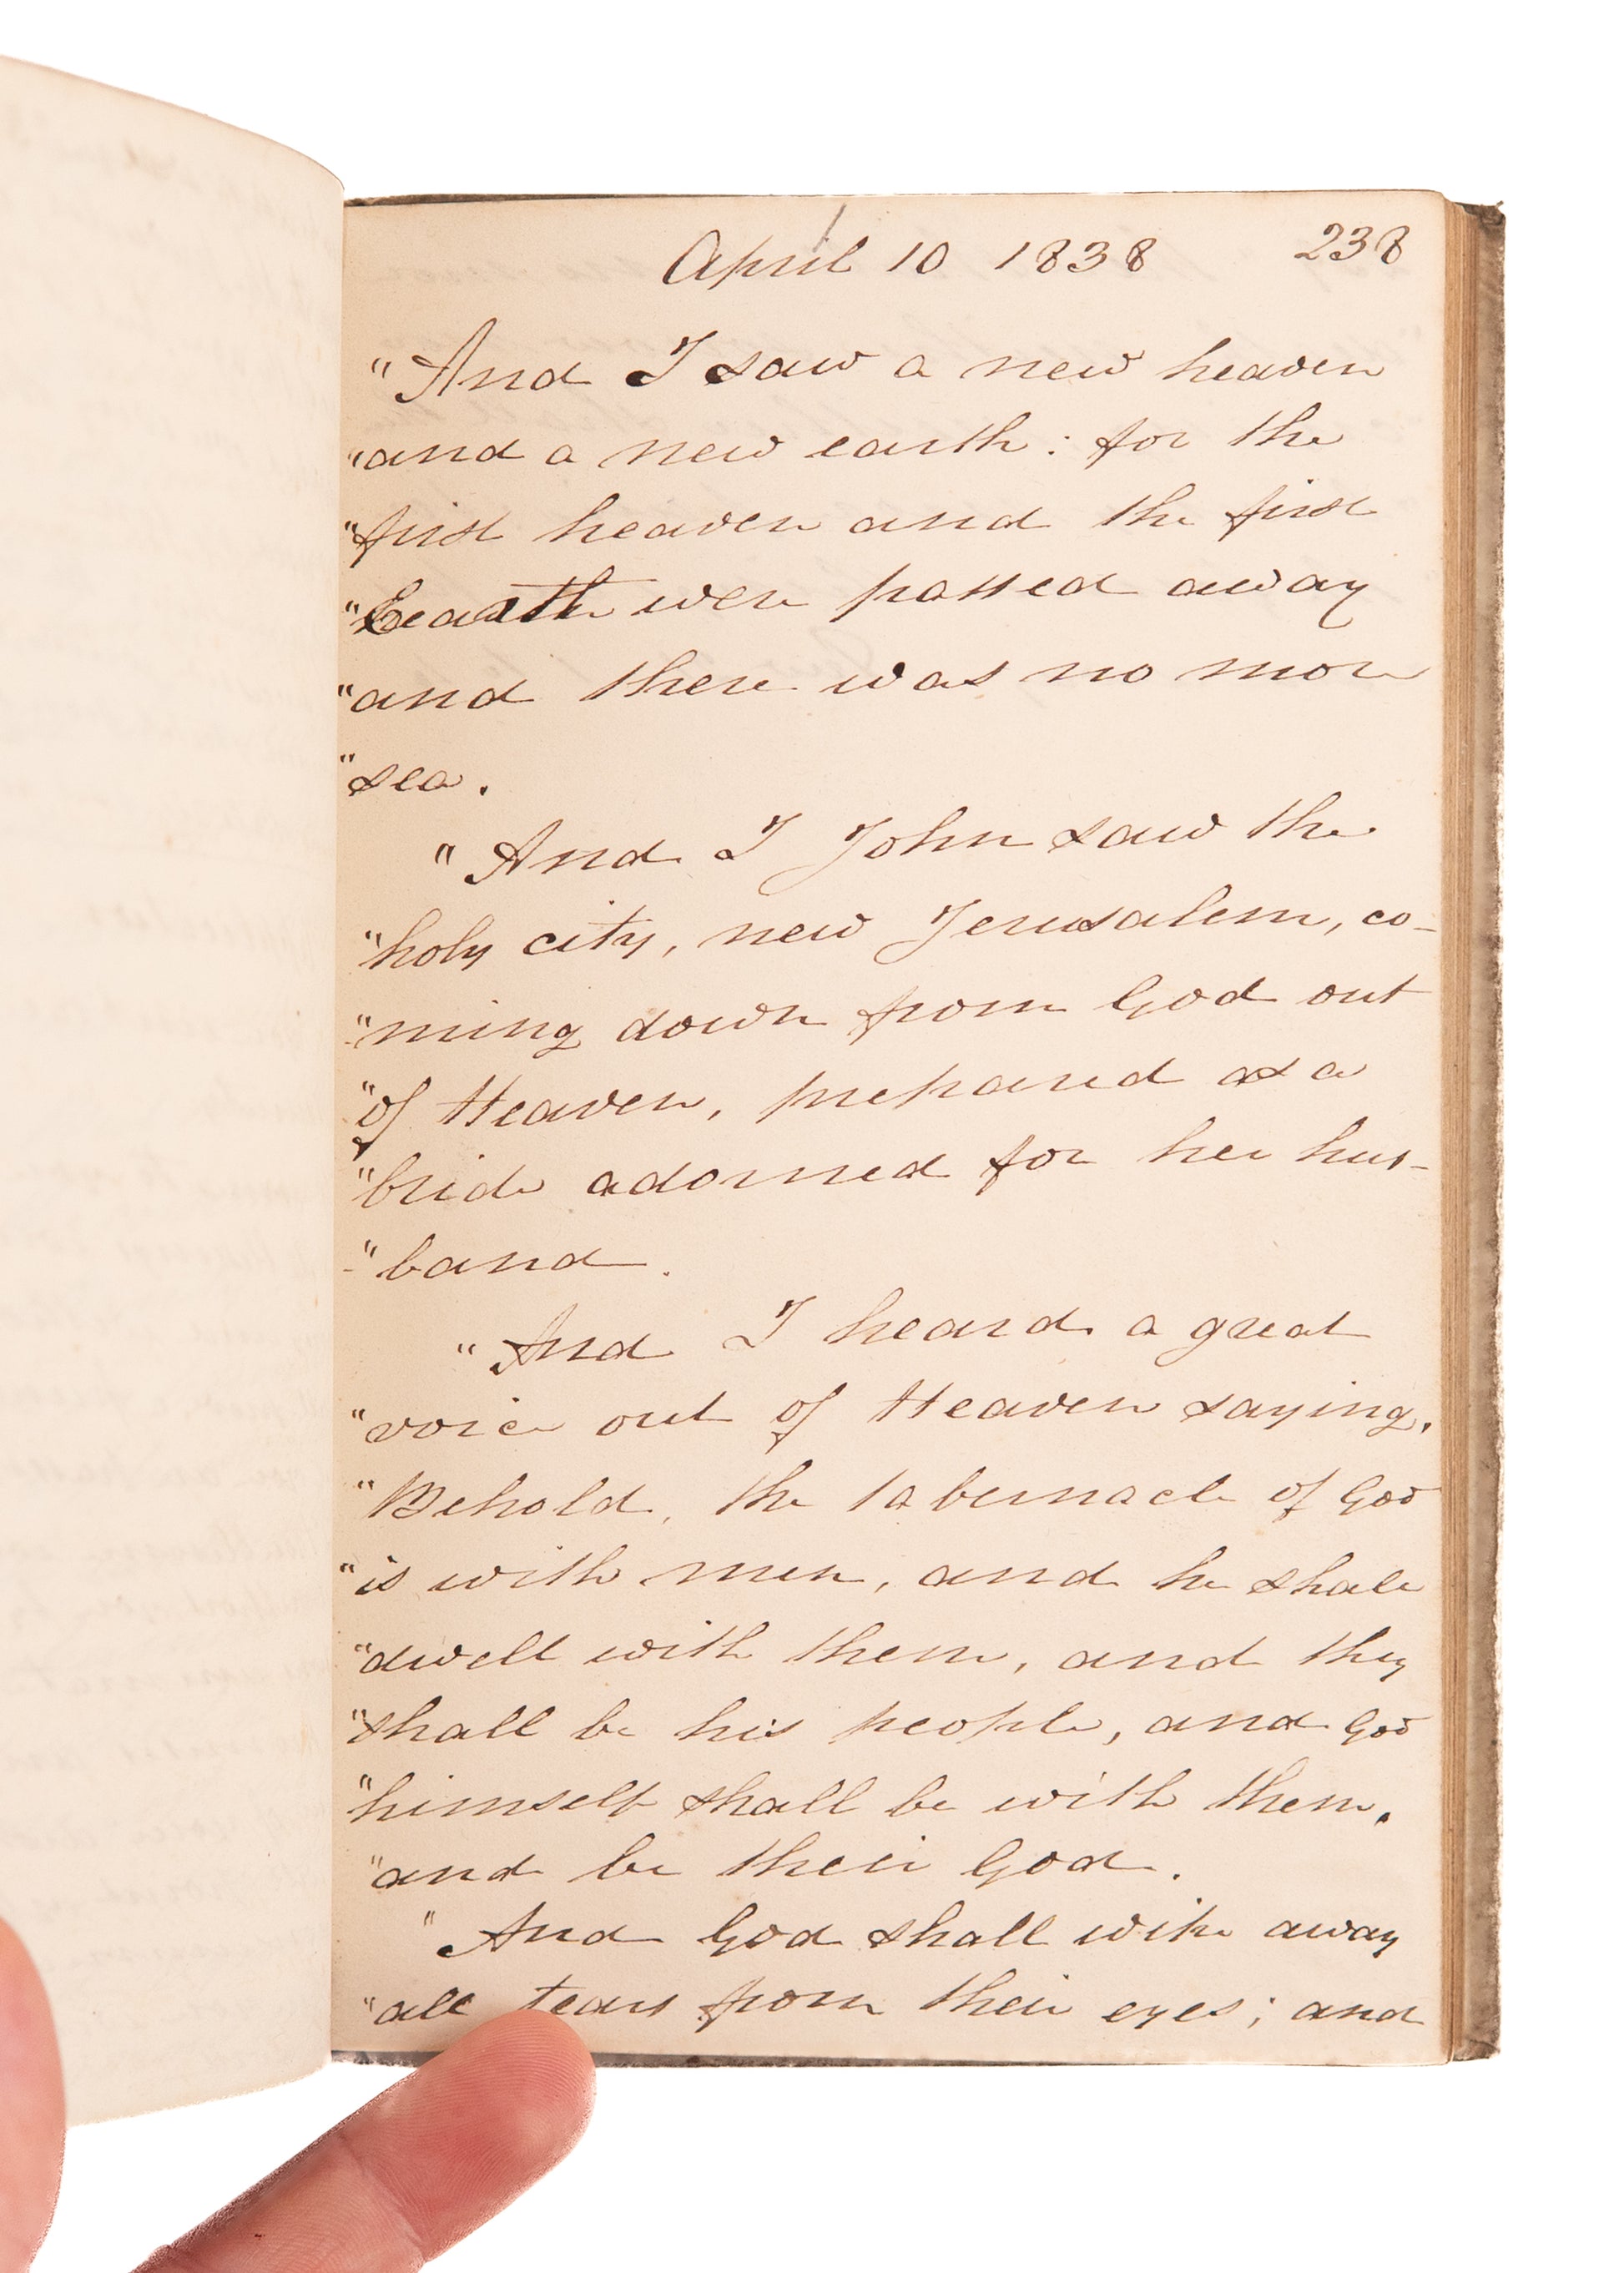 April 10 1838 238
"And I saw a new heaven
"and a new earth: for the
"first heaven and the first
"Eearth were passed away
"and there was no more
"sea.
"And I John saw the
"holy city, new Jerusalem, co-
"ming down from God out
"of Heaven, prepared as a
"bride adorned for her hus-
"band.
"And I heard a great
"voice out of Heaven saying,
"Behold, the tabernacle of God
"is with men, and he shall
"dwell with them, and they
"shall be his people, and God
"himself shall be with them,
"and be their God.
"And God shall wipe away
"all tears from their eyes; and